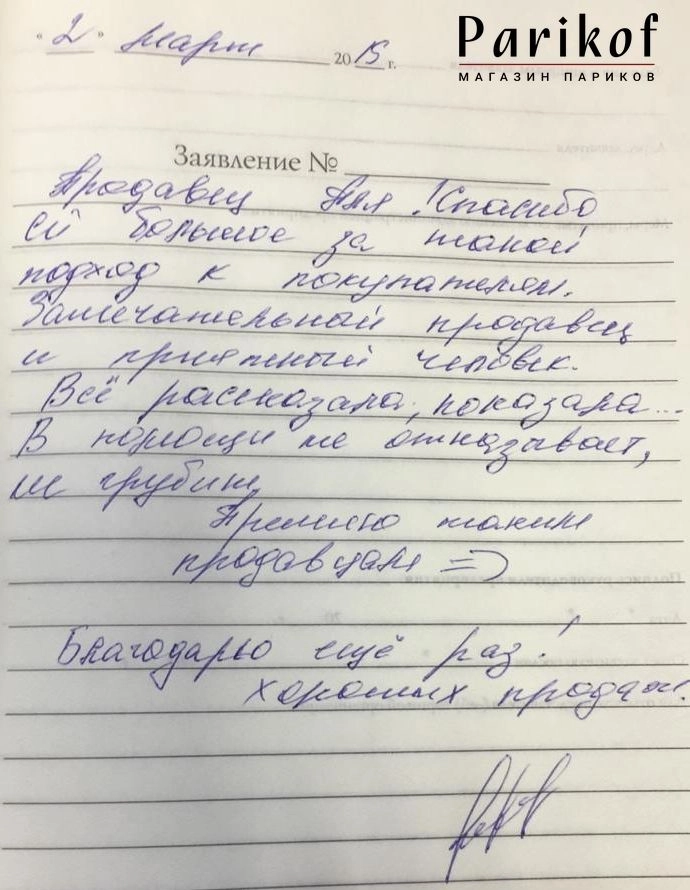 Parikof
МАГАЗИН ПАРИКОВ
"2" март 2015 г.
Заявление №
Продавец Аля! Спасибо
ей большое за такой
подход к покупателям.
Замечательный продавец
и приятный человек.
Всё рассказала, показала...
В помощи не отказывает,
не грубит
Премию таким
продавцам =)
Благодарю ещё раз!
хороших продаж!